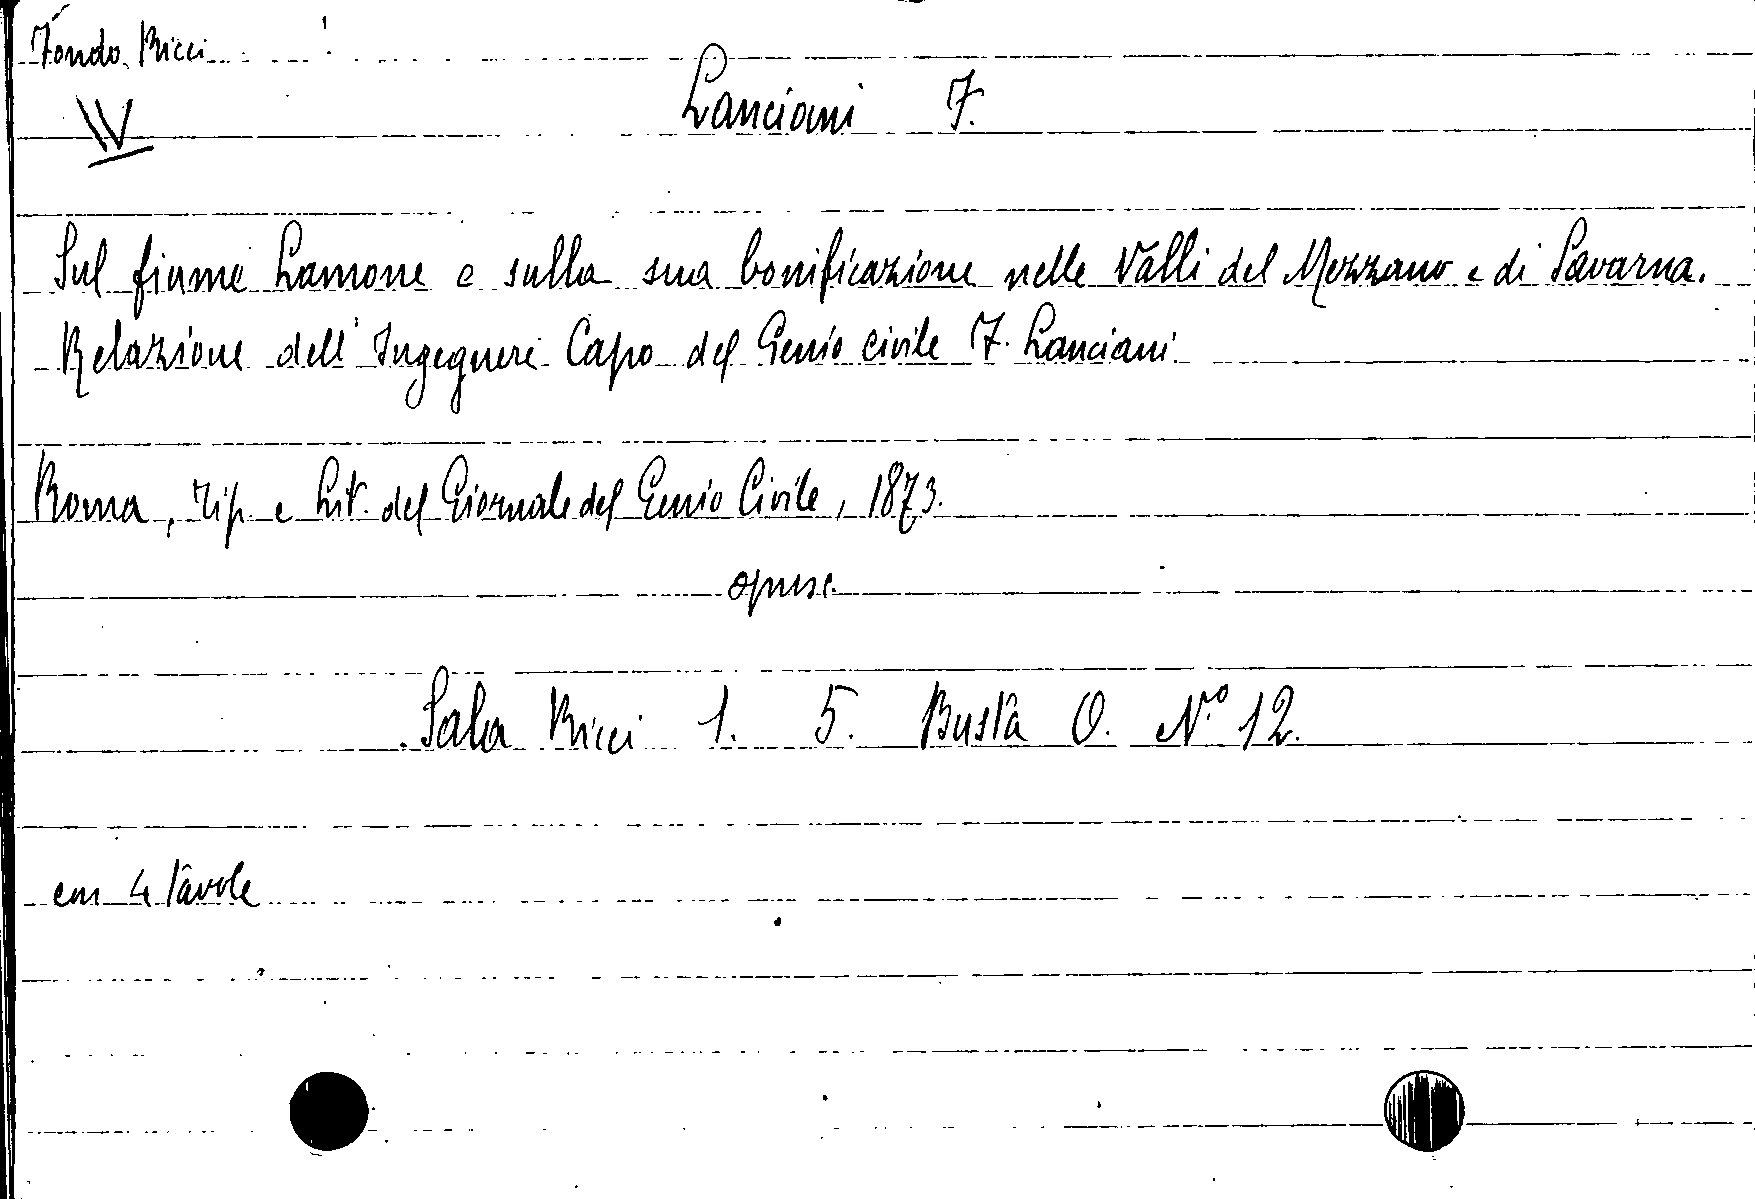 Fondo Ricci
IV
Lanciani F.
Sul fiume Lamone e sulla sua bonificazione nelle Valli del Mezzano e di Savarna.
Relazione dell'Ingegnere Capo del Genio civile F. Lanciani
Roma, Tip. e Lit. del Giornale del Genio Civile, 1873.
opusc.
Sala Ricci 1. 5. Busta O. N.º 12.
con 4 tavole